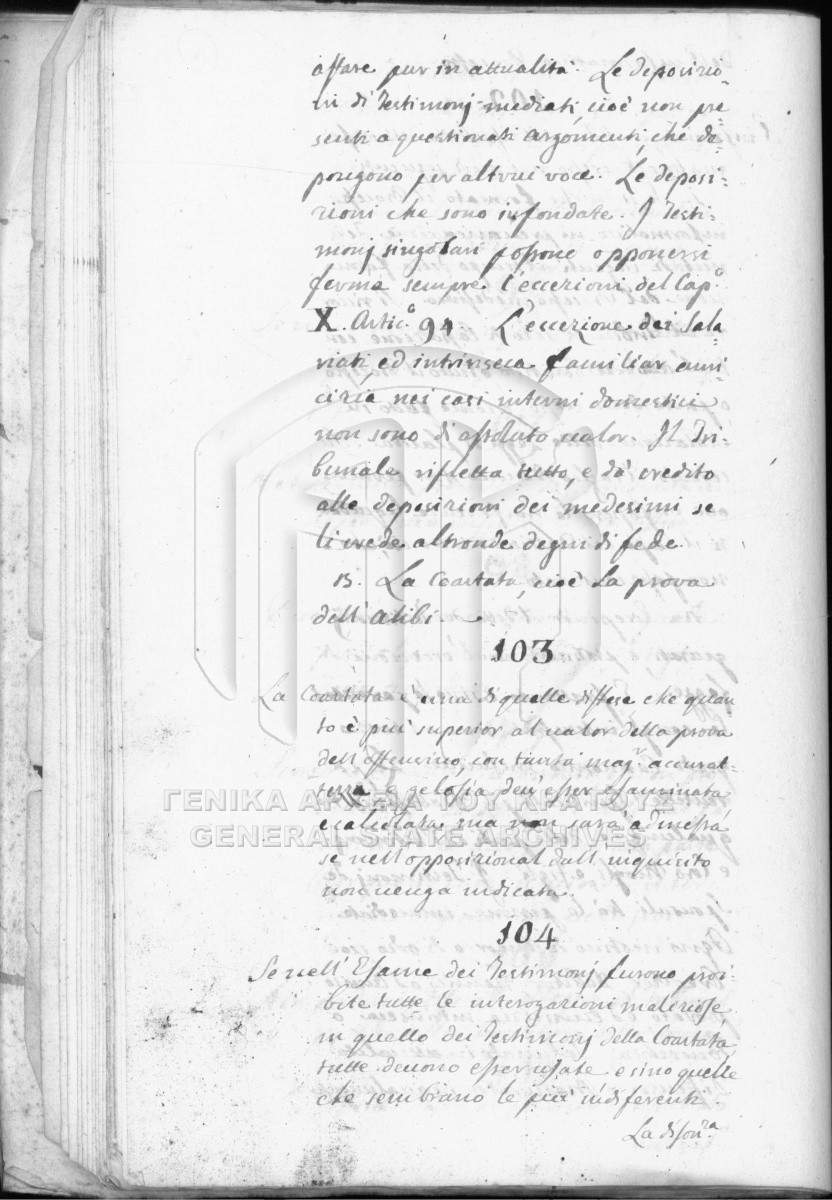 affare pur in attualità. Le deposizio=
ni di Testimonj mediati, cioè non pre=
senti a questionati argomenti, che de=
pongono per altrui voce. Le deposi=
zioni che sono infondate. I Testi=
monj singolari possono opponersi
ferma sempre l'eccezioni del Cap.º
X. Artic.º 94. L'eccezione dei Sala=
riati ed intrinseca familiar ami=
cizia nei casi interni domestici
non sono di assoluto valor. Il Tri=
bunale rifletta tutto, e dà credito
alle deposizioni dei medesimi se
li crede altronde degni di fede.
B. La Coartata, cioè la prova
dell'alibi.
103
La Coartata è una di quelle diffese che quan
to è più superior al valor della prova
dell'offensivo, con tutta mag.r accurat=
tezza e gelosia dev'esser esaminata
e calcolata ma non sarà admessa
se nell'opposizional dall'inquisito
non venga indicata.
104
Se nell'Esame dei Testimonj furono proi
bite tutte le interogazioni maliziose
in quello dei Testimonj della Coartata,
tutte devono esser usate e sino quelle
che sembrano le più indiferenti.
La
ΓΕΝΙΚΑ ΑΡΧΕΙΑ ΤΟΥ ΚΡΑΤΟΥΣ
GENERAL STATE ARCHIVES